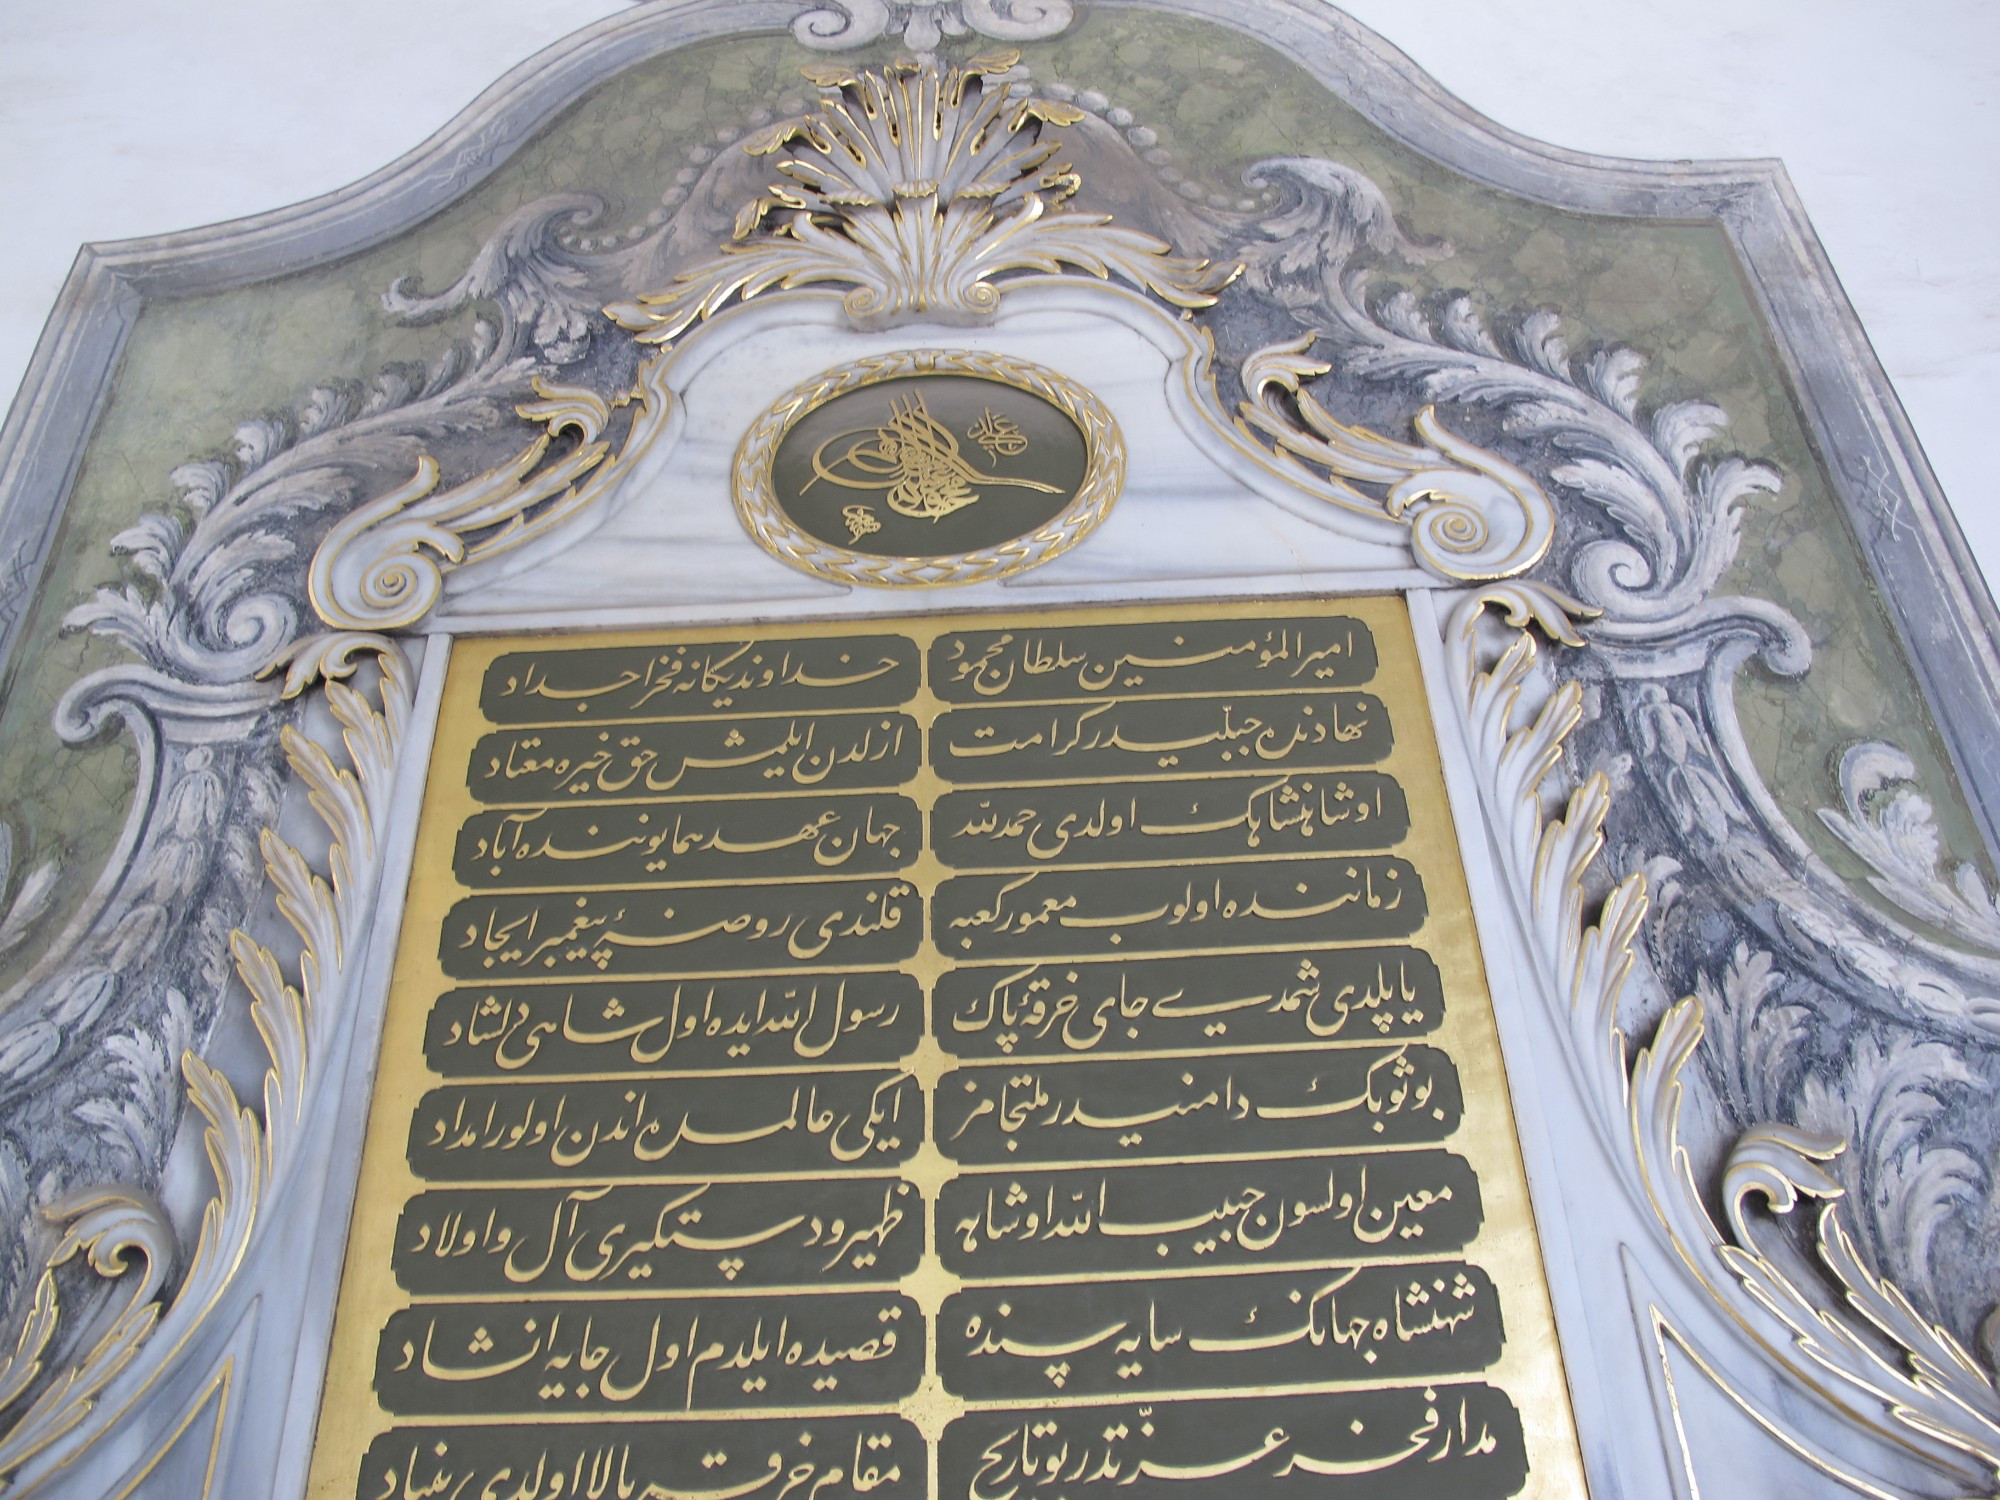 امير المؤمنين سلطان محمود خداوند يكانه فخر اجداد
نهادنده جبليدر كرامت ازلدن ايلمش حق خيره معتاد
او شاهنشاهك اولدى حمد لله جهان عهد همايوننده آباد
زماننده اولوب معمور كعبه قلندى روضهٔ پيغمبر ايجاد
ياپلدى شمديے جاى خرقهٔ پاك رسول الله ايده اول شاهى دلشاد
بو ثوبك دامنيدر ملتجامز ايكى عالمده اندن اولور امداد
معين اولسون حبيب الله او شاهه ظهير و دستكيرى آل و اولاد
شهنشاه جهانك سايه سنده قصيده ايلدم اول جايه انشاد
مدار فخر عزتدر بو تاريخ مقام خرقه بالا اولدى بنياد